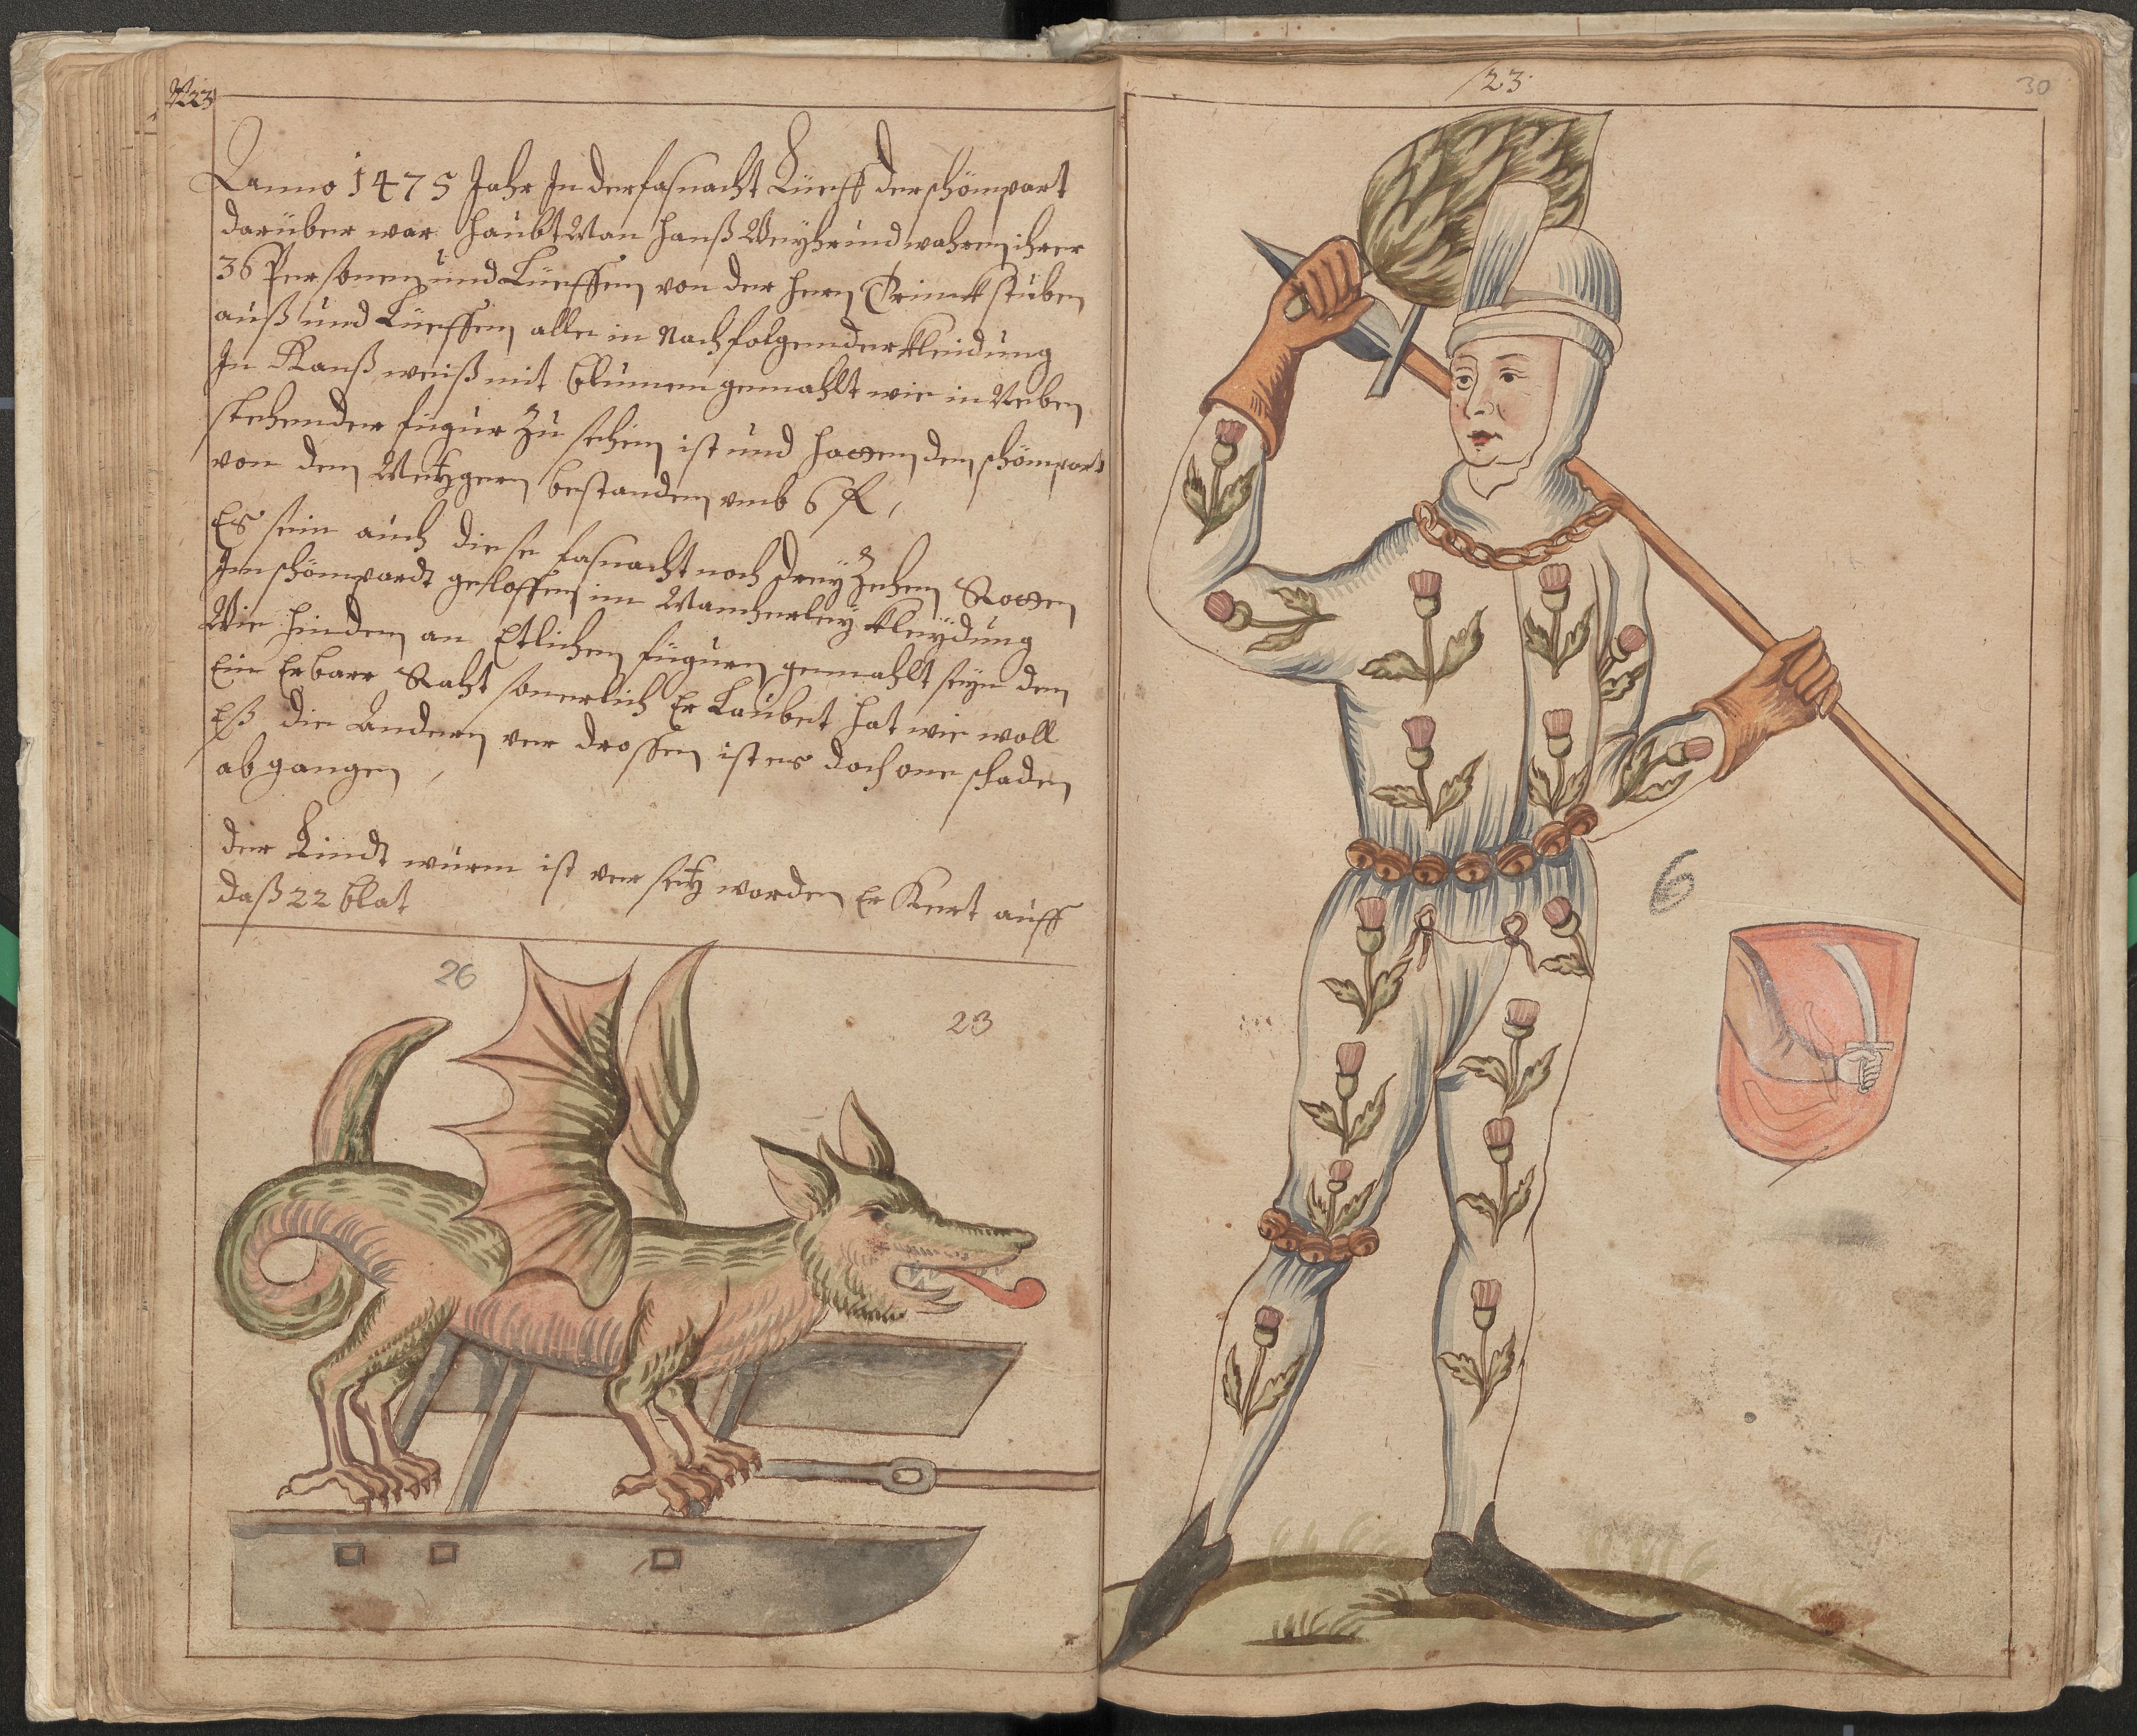 N 23
Anno 1475 Jahr In der fasnacht Lüeff der schömpart
darüber war haubtMan Hanß Weyhr und wahren ihrer
36 Personen und Lüeffen von der hern Trinckstuben
auß und Lüeffen alle in Nachfolgender kleidung
In Ganß weiß mit blumen gemahlt wie in Neben
stehender figur zu sehen ist und hatten den schömpart
von den Metzgern bestanden umb 6 fl,
Es sein auch diese fasnacht noch dreyzehen Rotten
Im schömpardt geloffen in Mancherley kleydung
Wie hinden an Etlichen figuren gemahlt seyn den
Ein Erbarr Raht sonerlich Er Laubet hat wie woll
Eß die Andern ver drossen ist es doch one schaden
ab gangen,
der Lindt wurm ist ver setz worden Er Kert auff
daß 22 blat
26
23
23.
30
6